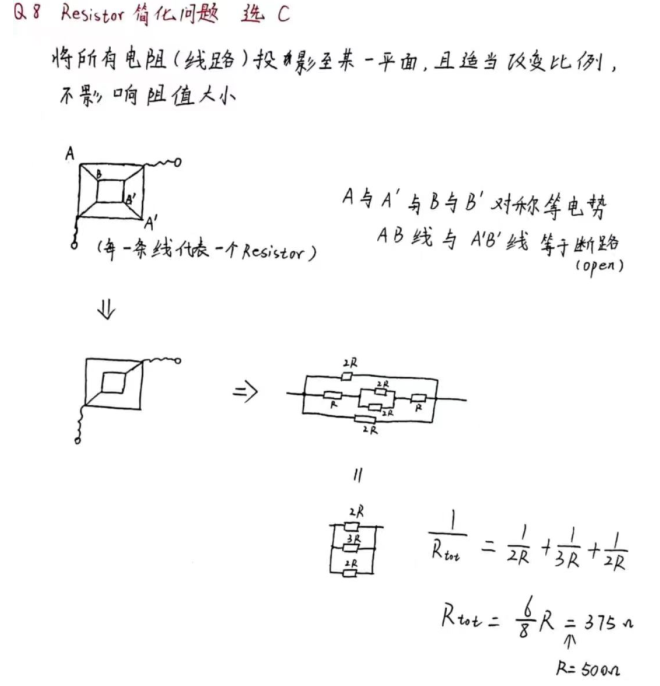 Q8 Resistor 简化问题 选 C
将所有电阻(线路)投影至某一平面,且适当改变比例,
不影响阻值大小
A
B
B'
A'
(每一条线代表一个Resistor)
A与A'与B与B'对称等电势
AB线与A'B'线等于断路
(open)
⇓
⇒
2R
R
2R
2R
R
2R
=
2R
3R
2R
1/Rtot = 1/2R + 1/3R + 1/2R
Rtot = 6/8 R = 375Ω
↑
R=500Ω